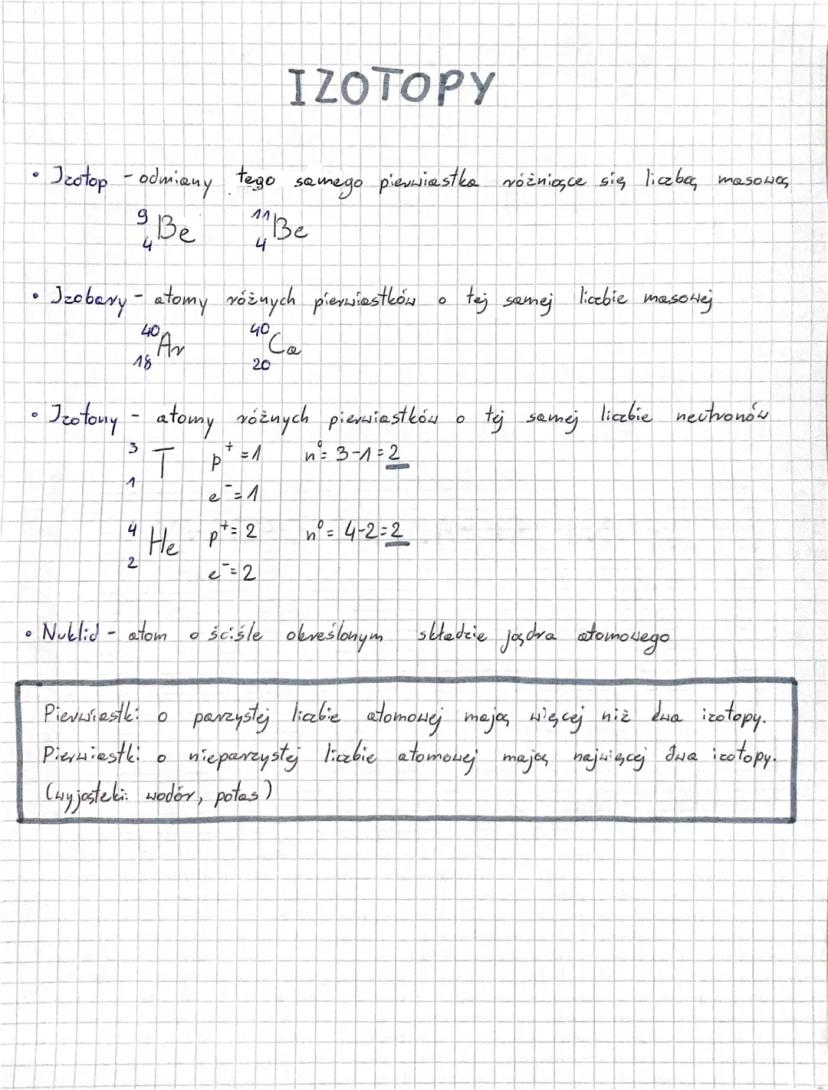 IZOTOPY
• Izotop - odmiany tego samego pierwiastka różniące się liczbą masową
⁹₄Be ¹¹₄Be
• Izobary - atomy różnych pierwiastków o tej samej liczbie masowej
⁴⁰₁₈Ar ⁴⁰₂₀Ca
• Izotony - atomy różnych pierwiastków o tej samej liczbie neutronów
³₁T p⁺=1 n⁰=3-1=2
e⁻=1
⁴₂He p⁺=2 n⁰=4-2=2
e⁻=2
• Nuklid - atom o ściśle określonym składzie jądra atomowego
Pierwiastki o parzystej liczbie atomowej mają więcej niż dwa izotopy.
Pierwiastki o nieparzystej liczbie atomowej mają najwięcej dwa izotopy.
(wyjąteki: wodór, potas)